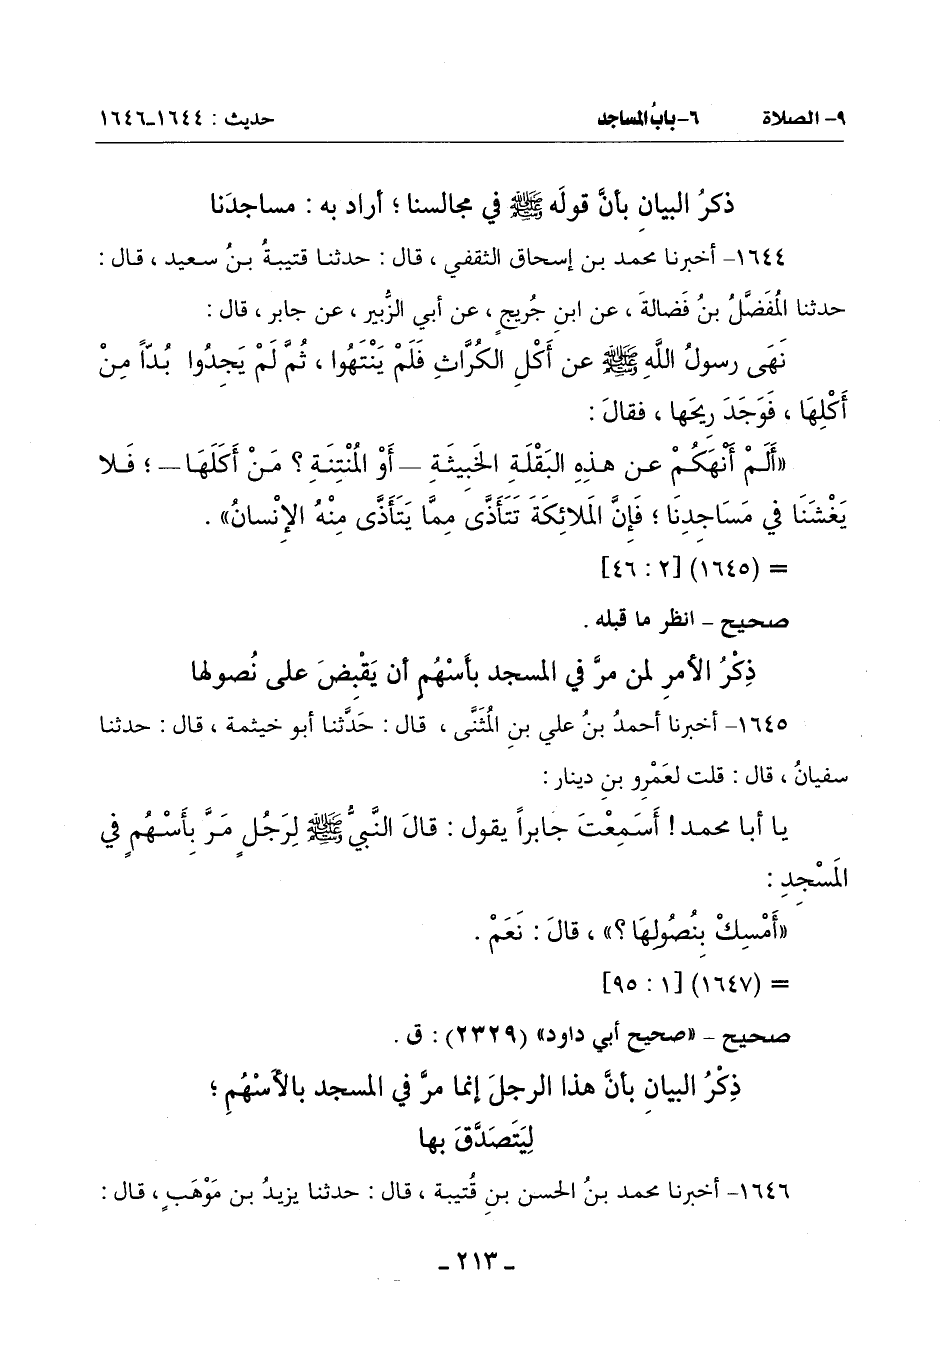 ٩- الصلاة ٦-بابُ المساجد حديث : ١٦٤٤-١٦٤٦
ذكرُ البيانِ بأنَّ قولَه ﷺ في مجالسنا ؛ أراد به : مساجدَنا
١٦٤٤- أخبرنا محمد بن إسحاق الثقفي ، قال : حدثنا قتيبةُ بنُ سعيد ، قال :
حدثنا المُفَضَّلُ بنُ فَضالةَ ، عن ابنِ جُريجٍ ، عن أبي الزُّبير ، عن جابر ، قال :
نَهَى رسولُ اللَّهِ ﷺ عن أَكْلِ الكُرَّاثِ فَلَمْ يَنْتَهُوا ، ثُمَّ لَمْ يَجِدُوا بُدّاً مِنْ
أَكْلِهَا ، فَوَجَدَ رِيحَها ، فقالَ :
«أَلَمْ أَنْهَكُمْ عن هذِهِ البَقْلَةِ الخَبِيثَةِ – أَوْ المُنْتِنَةِ ؟ مَنْ أَكَلَهَا – ؛ فَلا
يَغْشَنَا في مَسَاجِدِنَا ؛ فَإِنَّ المَلائِكَةَ تَتَأَذَّى مِمَّا يَتَأَذَّى مِنْهُ الإِنْسانُ» .
= (١٦٤٥) [٢ : ٤٦]
صحيح - انظر ما قبله .
ذِكْرُ الأمرِ لمن مرَّ في المسجد بأَسْهُمٍ أن يَقْبِضَ على نُصولها
١٦٤٥- أخبرنا أحمدُ بنُ علي بنِ المُثَنَّى ، قال : حَدَّثنا أبو خيثمة ، قال : حدثنا
سفيانُ ، قال : قلت لعَمْرِو بنِ دينار :
يا أبا محمد ! أَسَمِعْتَ جابراً يقول : قالَ النَّبيُّ ﷺ لِرَجُلٍ مَرَّ بِأَسْهُمٍ في
المَسْجِدِ :
«أَمْسِكْ بِنُصُولِهَا ؟» ، قالَ : نَعَمْ .
= (١٦٤٧) [١ : ٩٥]
صحيح - «صحيح أبي داود» (٢٣٢٩) : ق .
ذِكْرُ البيانِ بأنَّ هذا الرجلَ إنما مرَّ في المسجد بالأَسْهُمِ ؛
لِيَتَصَدَّقَ بها
١٦٤٦- أخبرنا محمد بنُ الحسن بنِ قُتيبة ، قال : حدثنا يزيدُ بن مَوْهَبٍ ، قال :
- ٢١٣ -